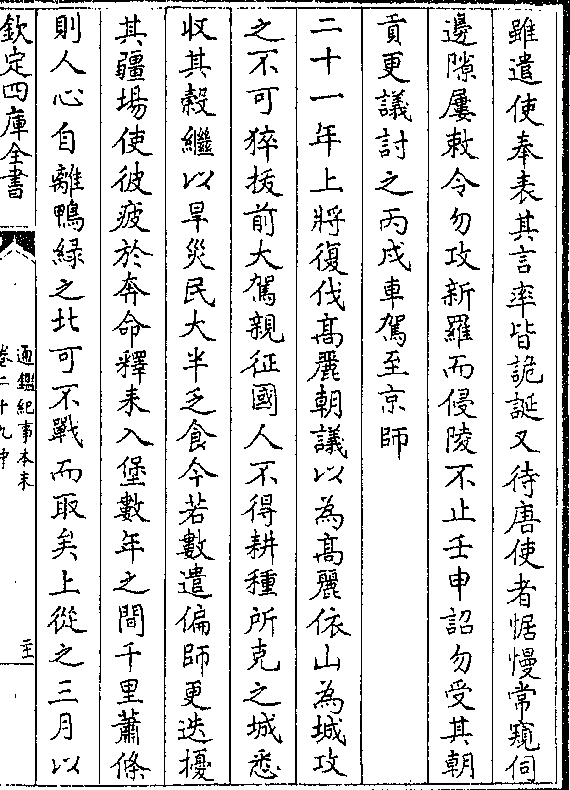 雖遣使奉表其言率皆詭誕又待唐使者倨慢常窺伺
邊隙屢敕令勿攻新羅而侵陵不止壬申詔勿受其朝
貢更議討之丙戌車駕至京師
二十一年上將復伐髙麗朝議以為髙麗依山為城攻
之不可猝拔前大駕親征國人不得耕種所克之城悉
收其榖繼以旱災民大半乏食今若數遣偏師更迭擾
其疆場使彼疲於奔命釋耒入堡數年之間千里蕭條
則人心自離鴨緑之北可不戰而取矣上從之三月以
欽定四庫全書
通鑑紀事本末
卷二十九中